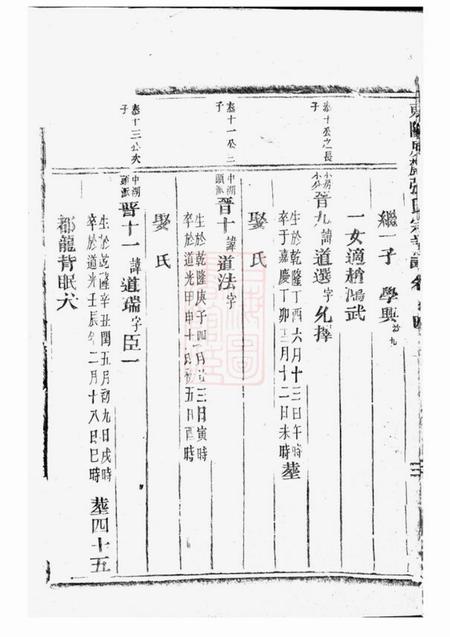 繼一子 學興
一女適趙鴻武
泰十公之長子
晉九 諱 道選 字 允擇
生於乾隆丁酉六月十三日午時
卒于嘉慶丁卯三月十二日未時 葬
娶氏
泰十一公二子
中湖頭派
晉十 諱 道法 字
生於乾隆庚子四月廿三日寅時
卒於道光甲申十月初五日酉時
娶氏
泰十三公次子
中湖頭派
晉十一 諱 道瑞 字 臣一
生於乾隆辛丑閏五月初九日戌時
卒於道光壬辰年二月十八日巳時 葬四十五
都龍背眠犬